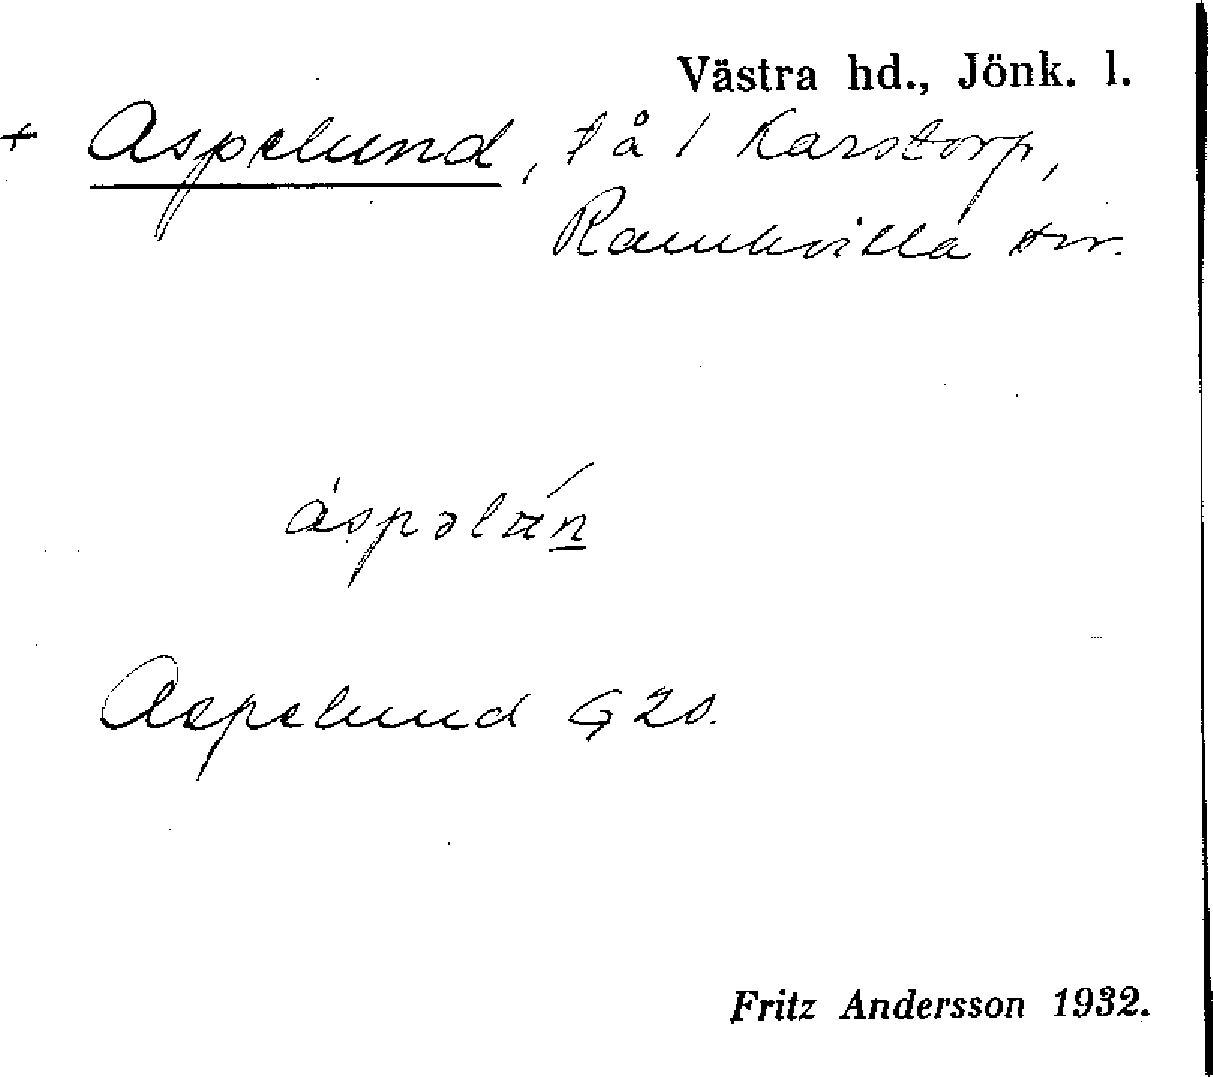 Västra hd., Jönk. l.
+ Aspelund, t å / Karstorp,
Ramkvilla sn.
áspəlán
Aspelund G 20.
Fritz Andersson 1932.